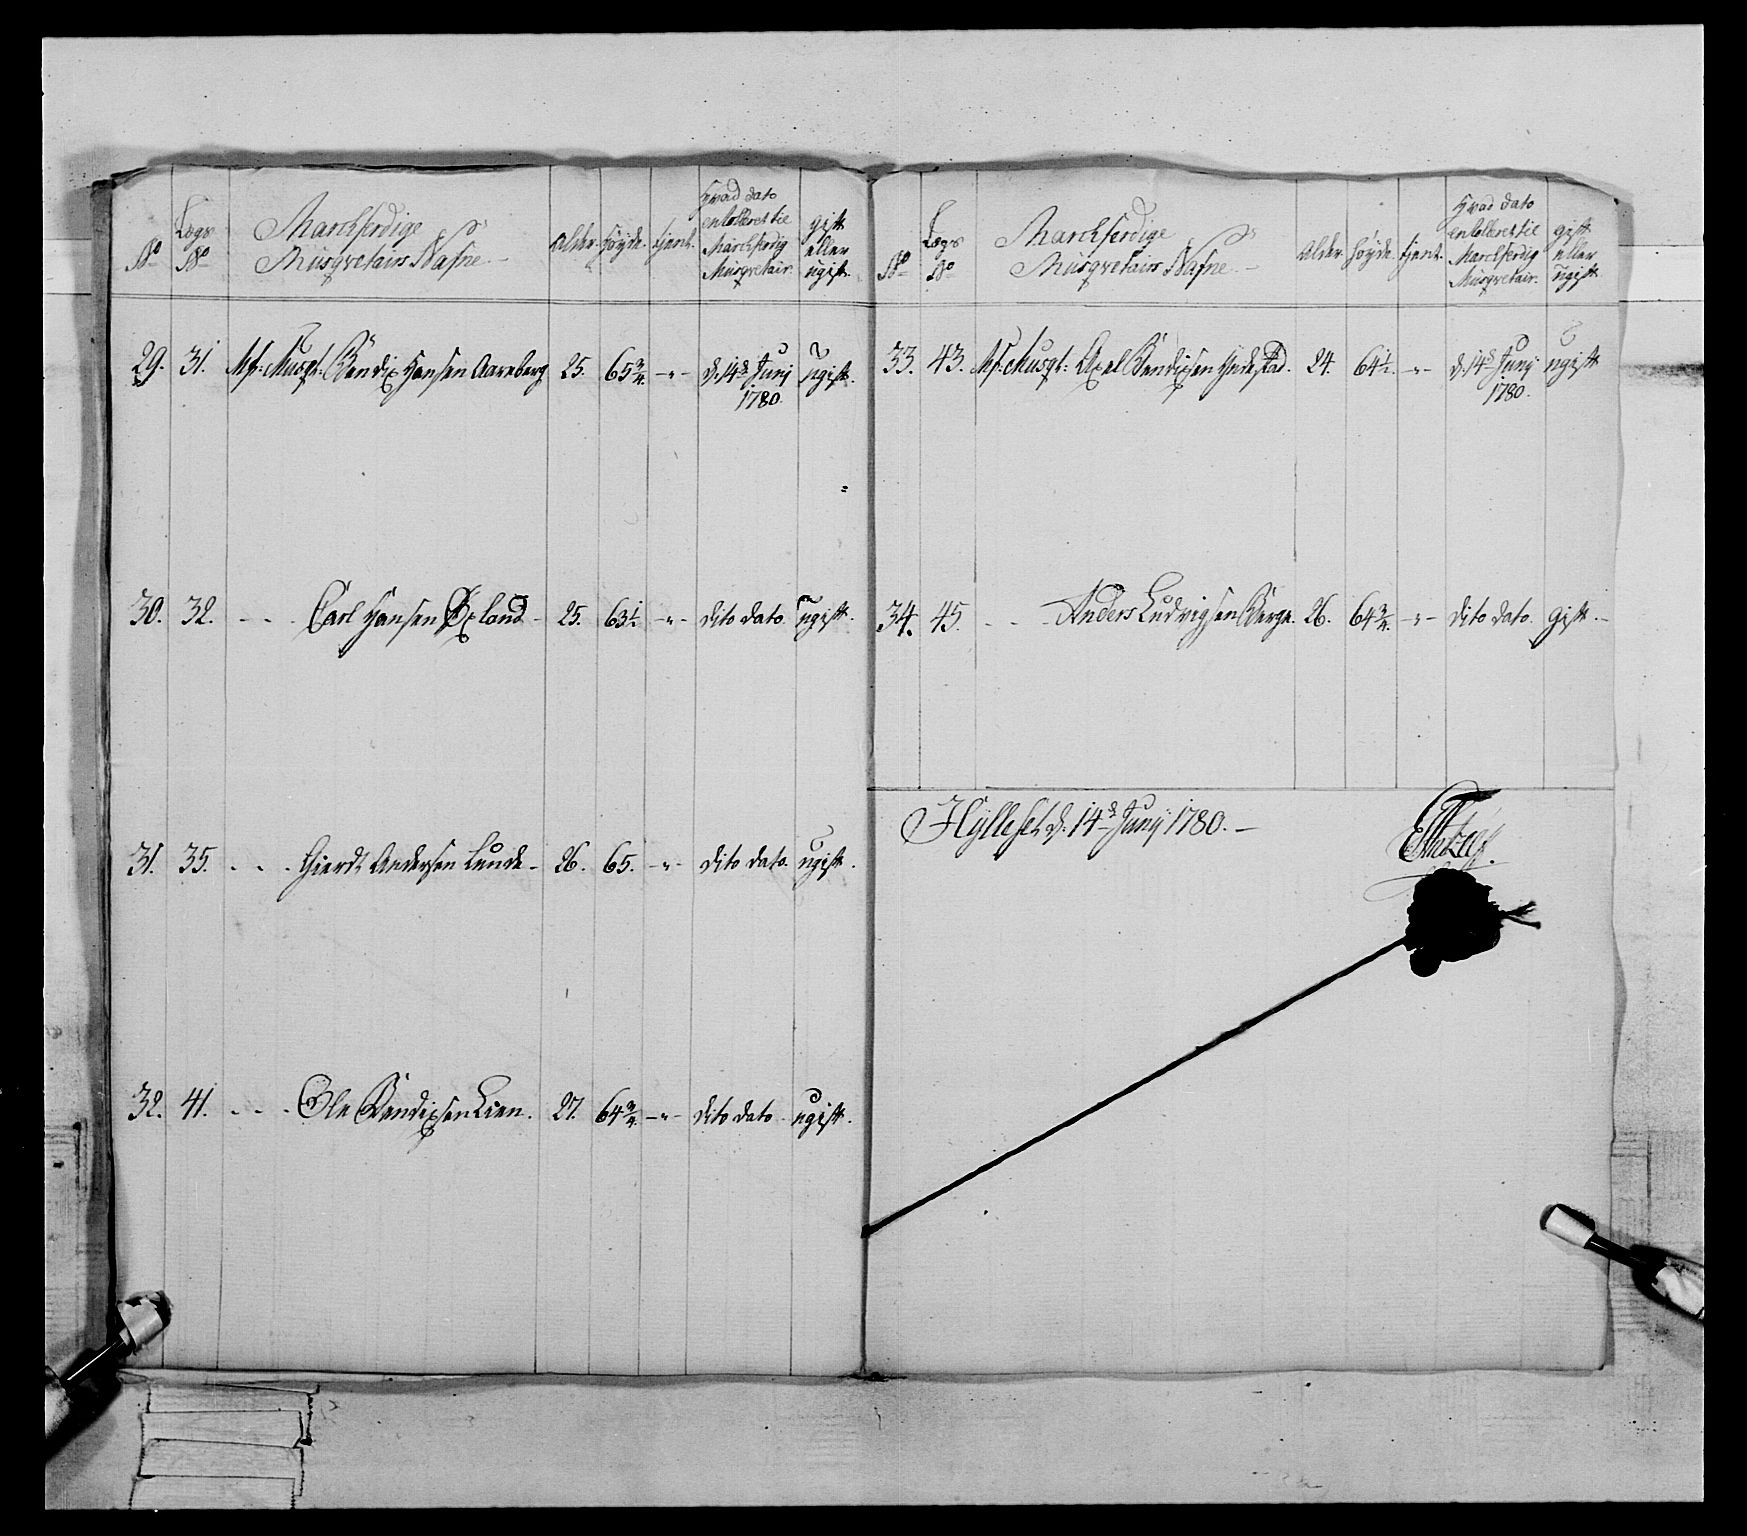 No
Lægs No
Marchferdige Musqvetairs Nafne.
Alder.
Høyde.
tjent.
Hvad dato
enrolleret til
Marchferdig
Musqvetair.
gift
eller
ugift.
29. 31. Mf: Musqt: Bendix Hansen Aareberg 25. 65 3/4. -"- d. 14de Junij ugift.
1780.
30. 32. - - - Carl Hansen Øxland - 25. 63 1/2. -"- dito dato. ugift.
31. 35. - - - Gierdt Andersen Lunde - 26. 65. -"- dito dato. ugift.
32. 41. - - - Ole Bendixsen Lien. 27. 64 3/4. -"- dito dato ugift.
No
Lægs No
Marchferdige Musqvetairs Nafne. -
Alder.
Høyde.
tjent.
Hvad dato
enrolleret til
Marchferdig
Musqvetair.
gift
eller
ugift.
33. 43. Mf: Musqt: Axel Bendixsen Hndestad. 24. 64 1/2. -"- d. 14de Junij ugift
1780.
34. 45. - - - Anders Ludvigsen Berge. 26. 64 3/4. -"- dito dato. gift. -
Hyllestd d. 14de Junij 1780. -